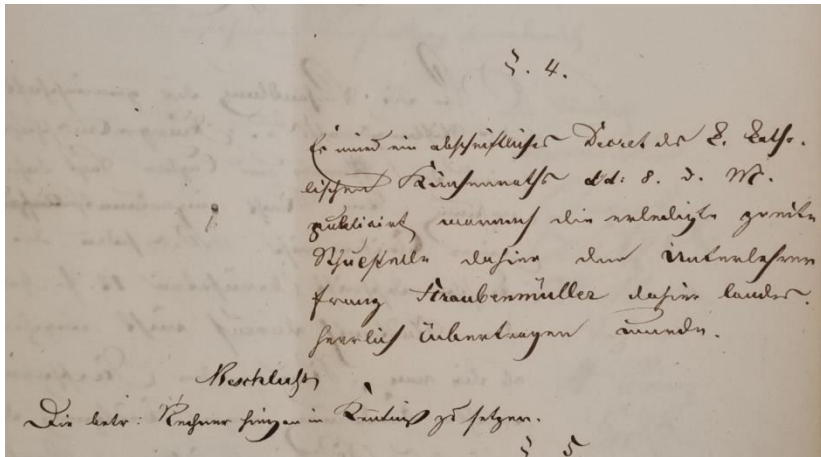 §. 4.
Es wird ein abschriftliches Decret des k. katho-
lischen Kirchenraths dd: 8. d. M.
publicirt, wornach die erledigte zweite
Schulstelle dahier dem Unterlehrer
Franz Straubenmüller dahier landes-
herrlich übertragen wurde.
Beschluß
Die betr: Rechner hievon in Kentniß zu setzen.
§ 5